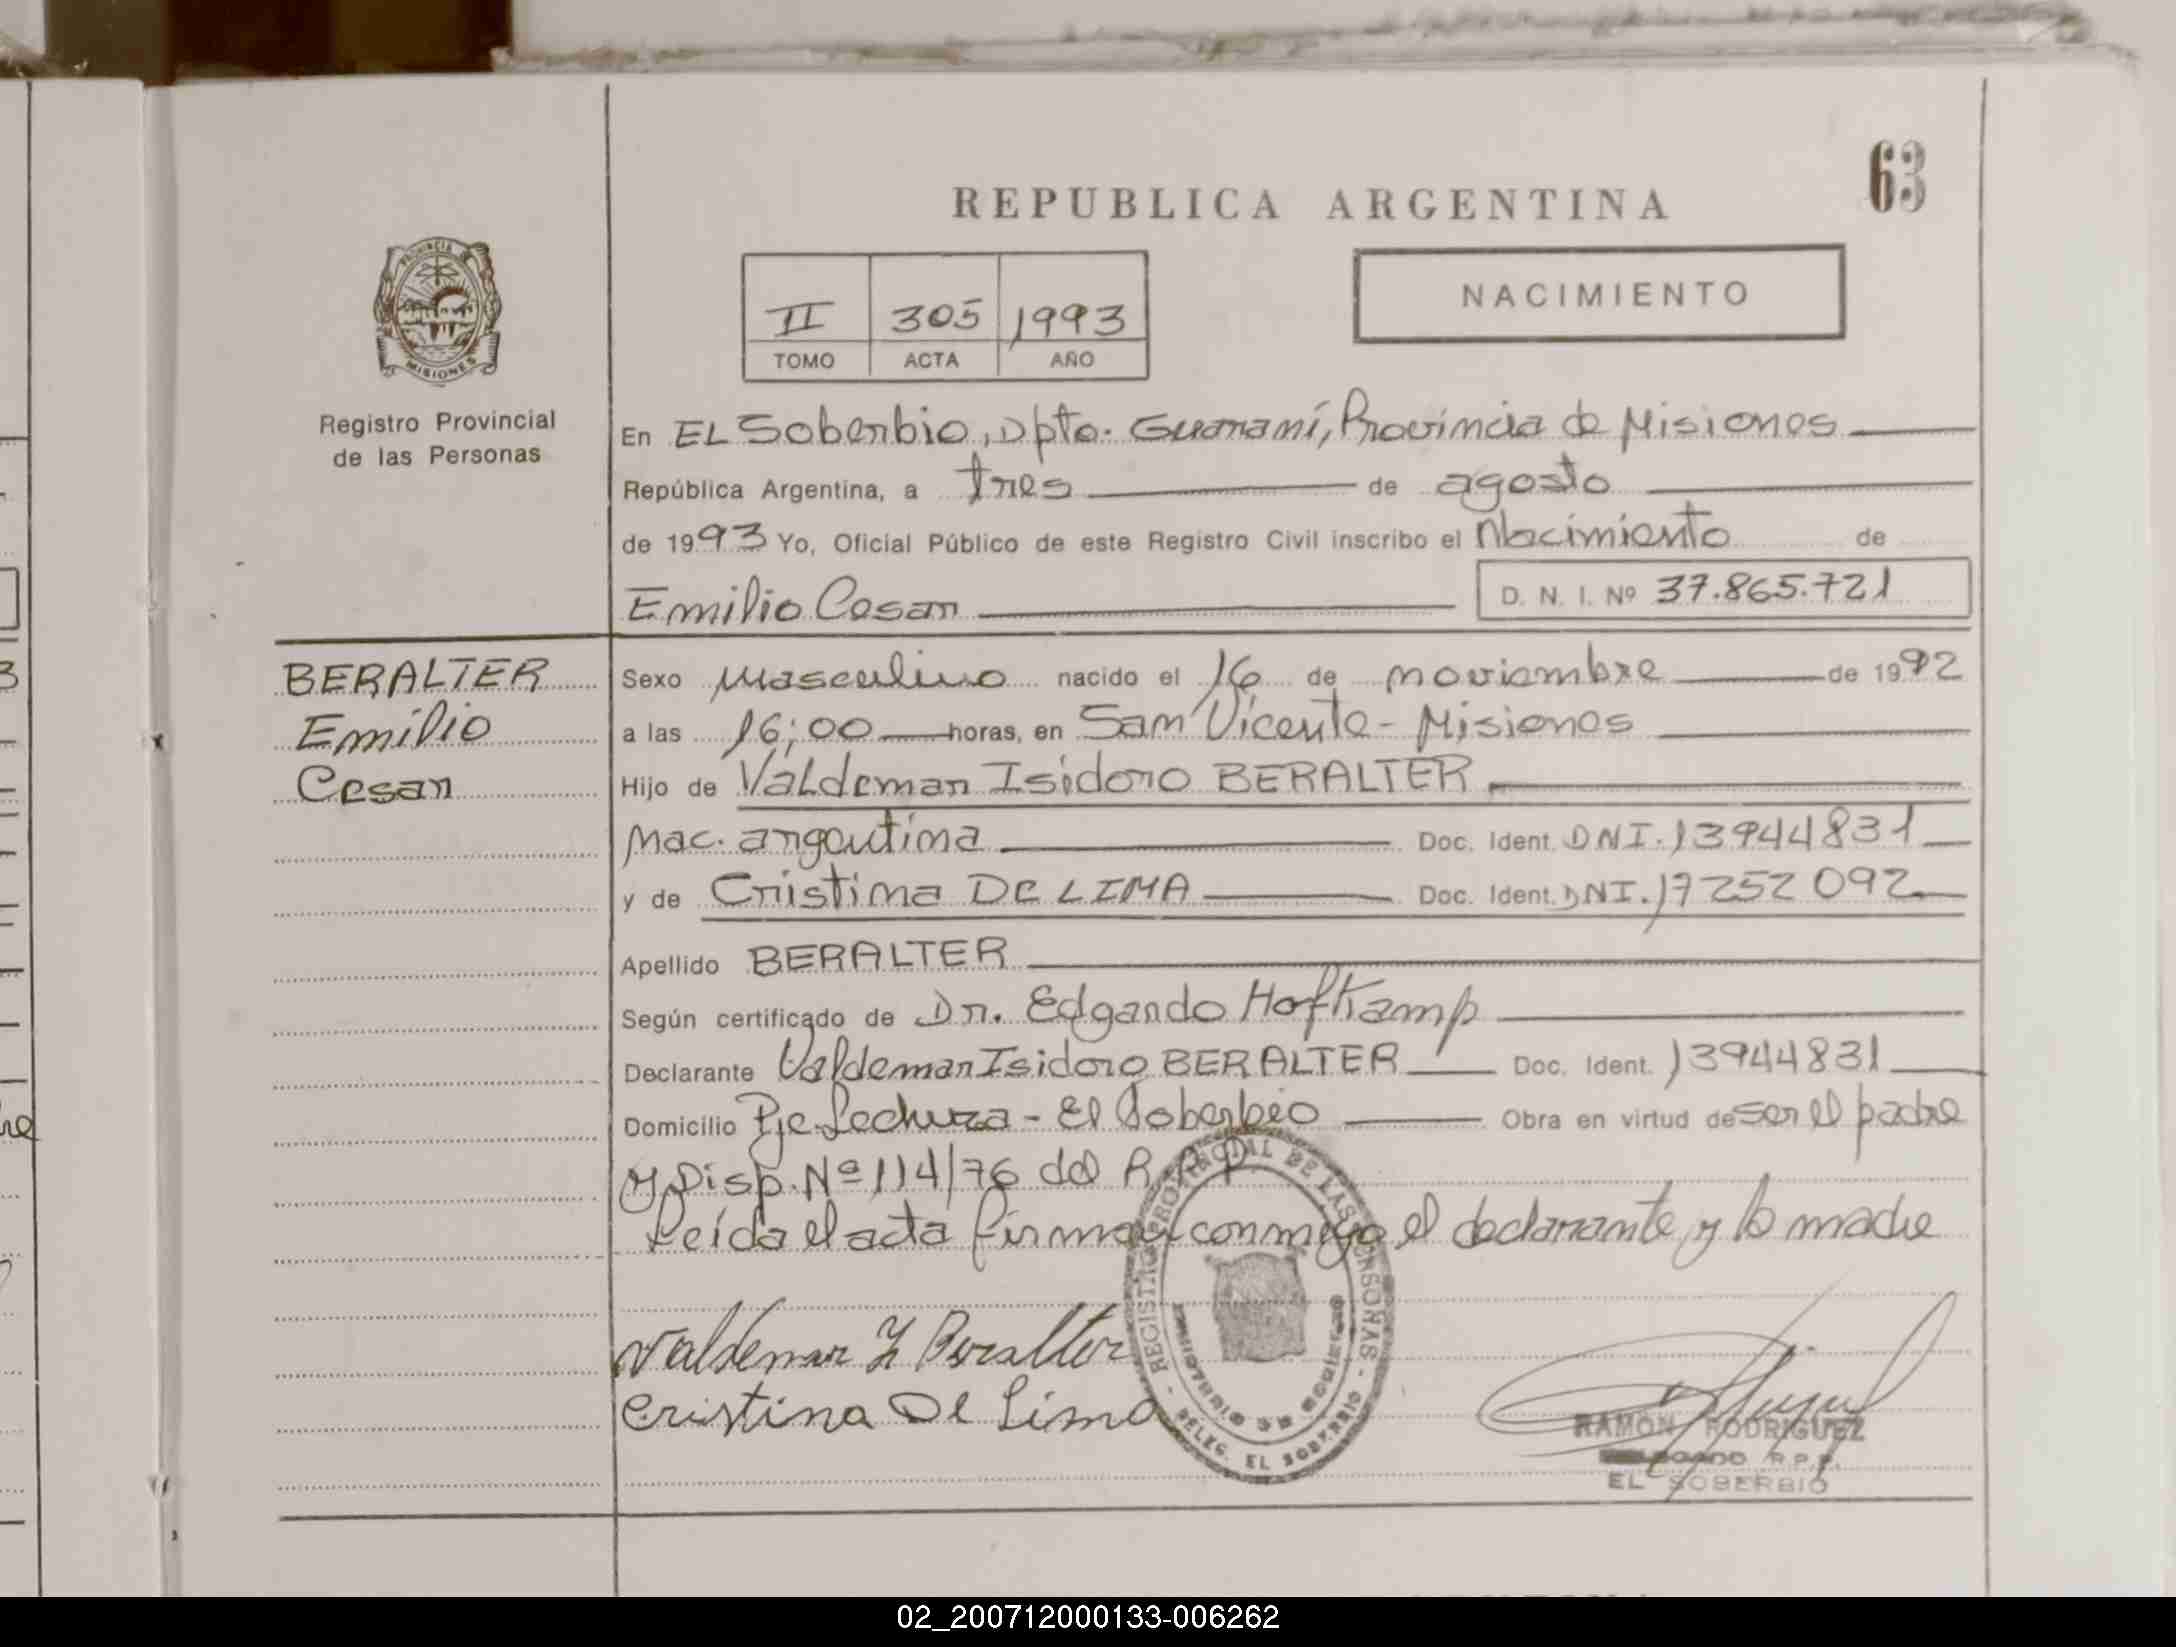 63
REPUBLICA ARGENTINA
PROVINCIA DE
MISIONES
Registro Provincial
de las Personas
II 305 1993
TOMO ACTA AÑO
NACIMIENTO
En EL Soberbio, Dpto. Guaraní, Provincia de Misiones
República Argentina, a tres de agosto
de 1993 Yo, Oficial Público de este Registro Civil inscribo el Nacimiento de
Emilio Cesar D. N. I. Nº 37.865.721
BERALTER
Emilio
Cesar
Sexo Masculino nacido el 16 de noviembre de 1992
a las 16;00 horas, en San Vicente - Misiones
Hijo de Valdemar Isidoro BERALTER
Nac. argentina Doc. Ident. DNI. 13944831
y de Cristina DE LIMA Doc. Ident. DNI. 17252092
Apellido BERALTER
Según certificado de Dr. Edgardo Hofkamp
Declarante Valdemar Isidoro BERALTER Doc. Ident. 13944831
Domicilio Pje. Lechuza - El Soberbio Obra en virtud de ser el padre
y Disp. Nº 114/76 del R.P.P.
Leída el acta firman conmigo el declarante y la madre
Valdemar I Beralter
Cristina De Lima
REGISTRO PROVINCIAL DE LAS PERSONAS - DELEG. EL SOBERBIO -
RAMON RODRIGUEZ
R.P.P.
EL SOBERBIO
02_200712000133-006262